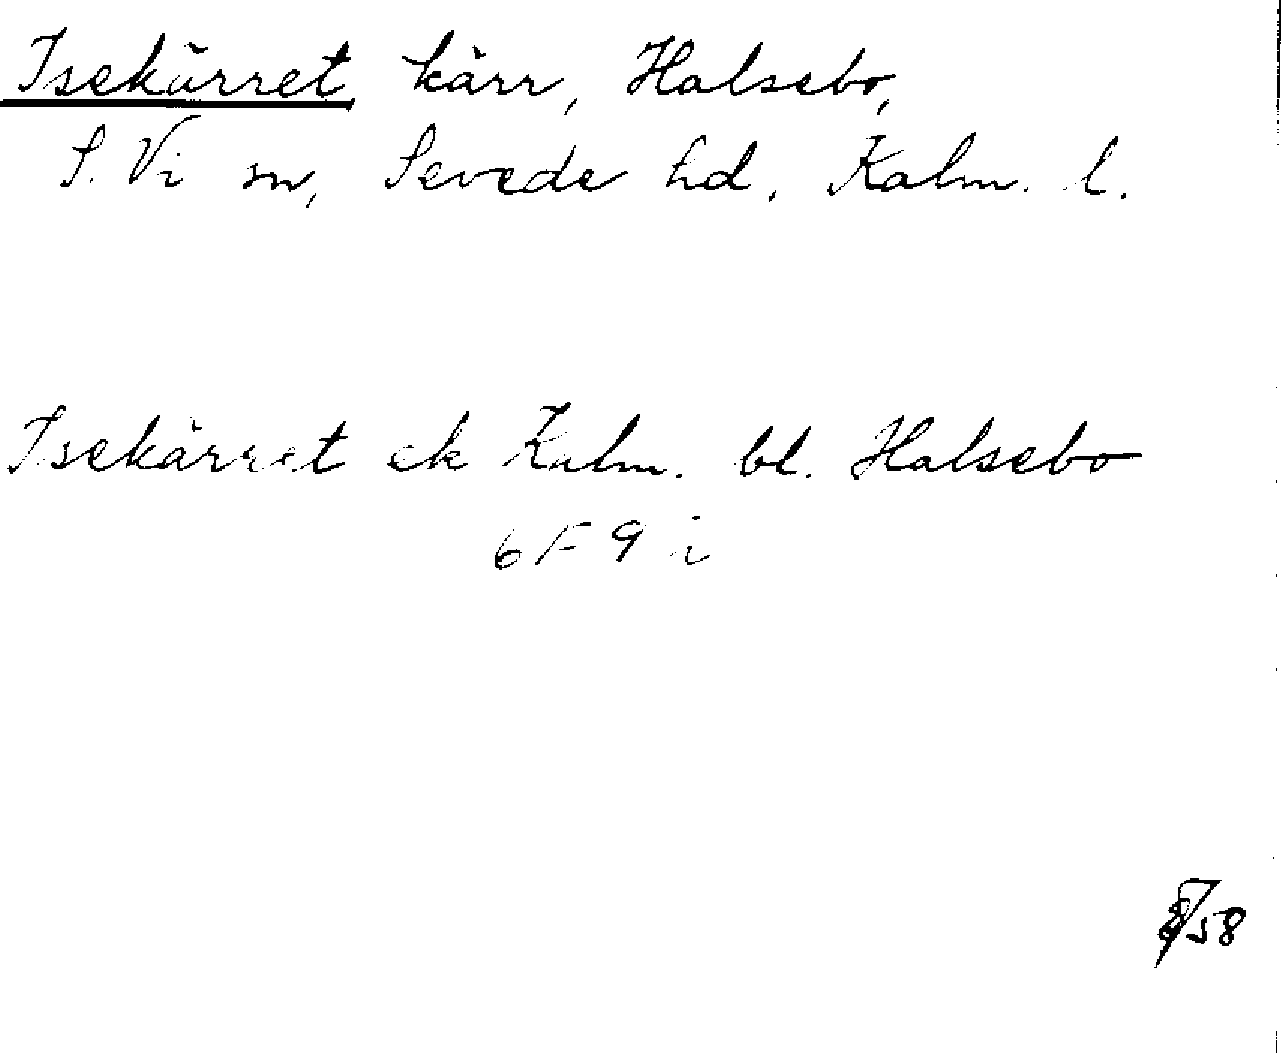 Isekärret kärr, Halsebo,
S. Vi sn, Sevede hd, Kalm. l.
Isekärret ek Kalm. bl. Halsebo
6 F 9 i
58